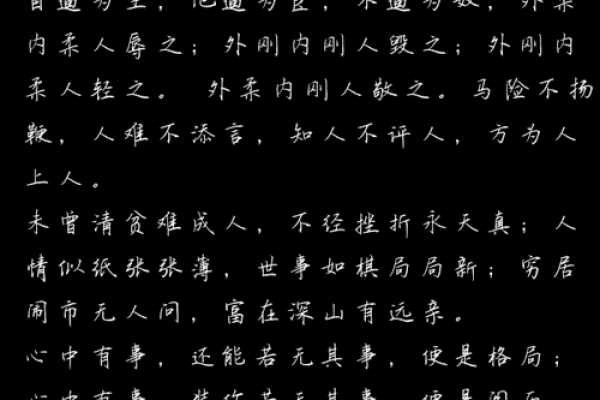 自逼为王，他逼为臣，不逼为奴，外柔
内柔人辱之；外刚内刚人毁之；外刚内
柔人轻之。 外柔内刚人敬之。马险不扬
鞭，人难不添言，知人不评人，方为人
上人。
未曾清贫难成人，不经挫折永天真；人
情似纸张张薄，世事如棋局局新；穷居
闹市无人问，富在深山有远亲。
心中有事，还能若无其事，便是格局；
心中有事，装作若无其事，便是